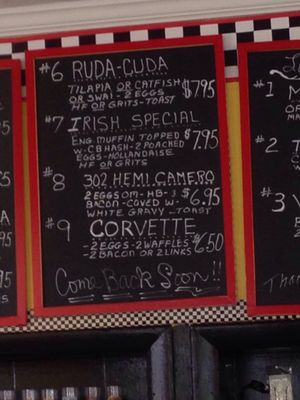 #6 RUDA-CUDA
TILAPIA OR CATFISH
OR SWAI - 2 EGGS
HF OR GRITS-TOAST
$7.95
#7 IRISH SPECIAL
ENG MUFFIN TOPPED
W-CB HASH-2 POACHED
EGGS-HOLLANDAISE
HF OR GRITS
$7.95
#8 302 HEMI CAMERO
2 EGGS OM-HB-3
BACON-COVED W-
WHITE GRAVY-TOAST
$6.95
#9 CORVETTE
-2 EGGS-2 WAFFLES
-2 BACON OR 2 LINKS
$6.50
Come Back Soon!!
#1
#2
#3